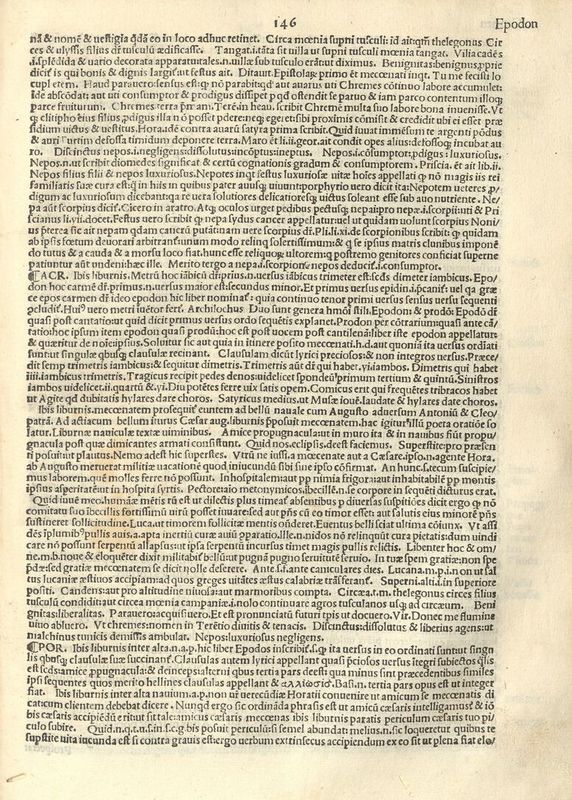 146
Epodon
nã & nomē & uestigia q̃dã eo in loco adhuc retinet. Circa mœnia supni tusculi: id ait: qm̃ thelegonus Cir
ces & ulyssis filius dr̃ tusculũ ædificasse. Tangat. i. tãta sit uilla ut supni tusculi mœnia tangat. Vilia cadēs
.i. splēdida & uario decorata apparatu tales. n. uillæ sub tusculo erãt ut diximus. Benignitas: benignus, pprie
dicit is qui bonis & dignis largit ut festus ait. Ditauit. Epistolaȩ primo ēt mecœnati inqt. Tu me fecisti lo
cupletem. Haud parauero: sensus est: q non parabit: qd aut auarus uti Chremes cōtinuo labore accumulet:
Ide abscōdat: aut uti consumptor & prodigus dissipet
parce fruiturum. Chremes
q̃ clitipho eius filius
sidium uictus & uestitus. Hora. idē contra auarũ satyra prima scribit. Quid iuuat immēsum te argenti põdus
& auri Furtim defossa timidum deponere terra. Maro ēt li. ii. geor. ait condit opes alius: defossoq; incubat au
ro. Discinctus nepos. i. negligens: dissolutus: inoptus: ineptus. Nepos. i. cōsumptor: pdigus: luxuriosus.
Nepos. n. ut scribit diomedes significat & certũ cognationis gradum & consumptorem. Priscia. ēt ait lib. ii.
Nepos filius filii & nepos luxuriosus. Nepotes inqt festus luxuriosæ uitæ hoies appellati q nō magis iis rei
familiaris suæ cura est: q̃ in hiis in quibus pater auusq; uiuunt: porphyrio uero dicit ita: Nepotem ueteres p
digum ac luxuriosum dicebant: qa re uera solutiores delicatioresq; uictus soleant esse sub auo nutriente. Ne
pa aũt scorpius dicit. Cicero in aratro. Atq; oculos urget pedibus pectusq; nepai pro nepæ. i. scorpii: uti & Pri
scianus li. vii. docet. Festus uero scribit q nepa sydus cancer appellatur uel ut quidam uolunt scorpius Noni/
us pterea sic ait nepam qdam cancrũ putãt: nam uere scorpius dr̃. Pli. li. xi. de scorpionibus scribit: q quidam
ab ipsis fœtum deuorari arbitrant: unum modo relinq solertissimum: & q se ipsius matris clunibus imponē
do tutus & a cauda & a morsu loco fiat. hunc esse reliquoȩ ultorem: q postremo genitores conficiat superne
patiuntur aũt undeni hæc ille. Merito tergo a nepa. i. scorpiōe nepos deducit. i. consumptor.
¶ACR. Ibis liburnis. Metrũ hoc iãbicũ dr̃: prius. n. uersus iãbicus trimeter est: secũdus dimeter iambicus. Epo/
don hoc carmē dr̃. primus. n. uersus maior est: secundus minor. Et primus uersus epidin. i. pcanit: uel qa græ
ce epos carmen dr̃ ideo epodon hic liber nominat: quia continuo tenor primi uersus sensus uersu sequenti
pcludit. Huius uero metri iuētor fert. Archilochus Duo sunt genera hmōi stili. Epodon: & prodō: Epodō dr̃
quasi post cantationē: quid dicit primus uersus ordo sequētis explanet. Prodon per cōtrarium: quasi ante cã/
tatio: hoc ipsum item epodon quasi produ: hoc est post uocem post cantilenã: liber iste epodon appellatur:
& quæritur de noie: ipsius. Soluitur sic aut quia in itinere posito mecœnati. h. d. aut quonia ita uersus ordinati
sunt: ut singulæ qbusq; clausulæ recinant. Clausulam dicũt lyrici preciosos: & non integros uersus. Præce/
dit semp trimetris iambicus: & sequitur dimetris. Trimetris aũt dr̃ qui habet. vi. iambos. Dimetris qui habet
iiii. iambicus trimetris. Tragicus recipit pedes denos: uidelicet spondeũ: primum tertium & quintũ. Sinistros
iambos uidelicet. ii. quartũ & vi. Diu potētes ferre uix satis opem. Comicus erit qui frequētes tribracos habet
ut Agite qd dubitatis hylares dare choros. Satyricus medius. ut Musæ iouē. laudate & hylares date choros.
Ibis liburnis. mecœnatem prosequit euntem ad bellũ nauale cum Augusto aduersum Antoniũ & Cleo/
patrã. Ad actiacum bellum iturus Cæsar aug. liburnis pposuit mecœnatem. hac igitur illũ poeta oratiōe so
latur. Liburnæ nauiculæ textæ uiminibus. Amice propugnacula: ut in muro ita & in nauibus fiũt propu/
gnacula post quæ dimicantes armati consistunt. Quid nos. eclipsis. deest faciemus. Superstite: pro præsen
ti posuit: uiuit plautus. Nemo adest hic superstes. Vtrũ ne iussi. a mœcenate aut a Cæsare. ipso. n. agente Hora.
ab Augusto meruerat militiæ uacationē quod iniucundũ sibi sine ipso cōfirmat. An hunc. s. tecum suscipie/
mus laborem. quē molles ferre nō possunt. Inhospitalem: aut pp nimia frigora: aut inhabitabilē pp mentis
ipsius asperitatē: ut in hospita syrtis. Pectore: aio metonymicos. ibecille. n. se corpore in sequēti dicturus erat.
Quid iuuē meo. humãæ mētis rũ est: ut dilectis plus timeat absentibus
comitatu suo ībecillis fortissimũ uirũ posset iuuare
sustineret sollicitudinē. Luca. ut timorem sollicitæ mentis oñderet. Euentus belli sciat ultima cōiunx. Vt assi
dēs iplumibus pullis auis. a. apta inertiũ curæ auiũ
care nō possunt serpentũ allapsus: ut ipsa serpentũ incursus timet magis pullis relictis. Libenter hoc & om/
ne. m. b. noue & eloquēter dixit militabit bellũ: ut pugnã pugno: seruitute seruio. In tuæ spem gratiæ: non spe
pdæ: sed gratiæ mecœnatem se dicit nolle deserere. Ante. s. i. ante caniculares dies. Lucana. m. p. i. non ut sal
tus lucaniæ æstiuos accipiam: ad quos greges uitãtes æstus calabriæ trãsferant. Superni. alti. i. in superiore
positi. Candens: aut pro altitudine niuosa: aut marmoribus compta. Circæa. t. m. thelegonus circes filius
tusculũ condidit: aut circea mœnia campaniæ. i. nolo continuare agros tusculanos usq; ad circæum. Beni
gnitas: liberalitas. Parauero: acquisiuero. Et est pronunciatũ futuri tpis ut docuero. Vir. Donec me flumine
uiuo abluero. Vt chremes: nomen in Terētio diuitis & tenacis. Discinctus: dissolutus & liberius agens: ut
malchinus tunicis demissis ambulat. Nepos: luxuriosus negligens.
¶POR. Ibis liburnis inter alta. n. a. p. hic liber Epodos inscribit. s. q ita uersus in eo ordinati sunt: ut singu
lis qbusq; clausulæ suæ succinant. Clausulas autem lyrici appellant quasi pciosos uersus itegri subiectos
est: se dices: amice, ppugnacula: & deinceps: alterni qbus tertia pars deest: qua minus sunt præcedentibus similes
ipsi sequentes quos merito hellines clausulas appellant & . Bas. n. tertia pars opus est ut integer
fiat. Ibis liburnis inter alta nauium. a. p. non ut uerecũdiæ Horatii conuenire ut amicum se mecœnatis di
cat: cum clientem debebat dicere. Nunqd ergo sic ordinãda phrasis est: ut amicũ cæsaris intelligamus: & i
bis cæsaris accipiēdũ e ritut sit tale: amicus cæsaris mecœnas ibis liburnis paratis periculum cæsaris tuo pi/
culo subire. Quid. n. q. t. u. s. i. n. s. c. g. bis posuit periculũ: si semel abundat: melius. n. sic loqueretur quibus te
supstite uita iucunda est si contra grauis est: ergo uerbum extrinsecus accipiendum ex eo sit ut plena fiat elo/